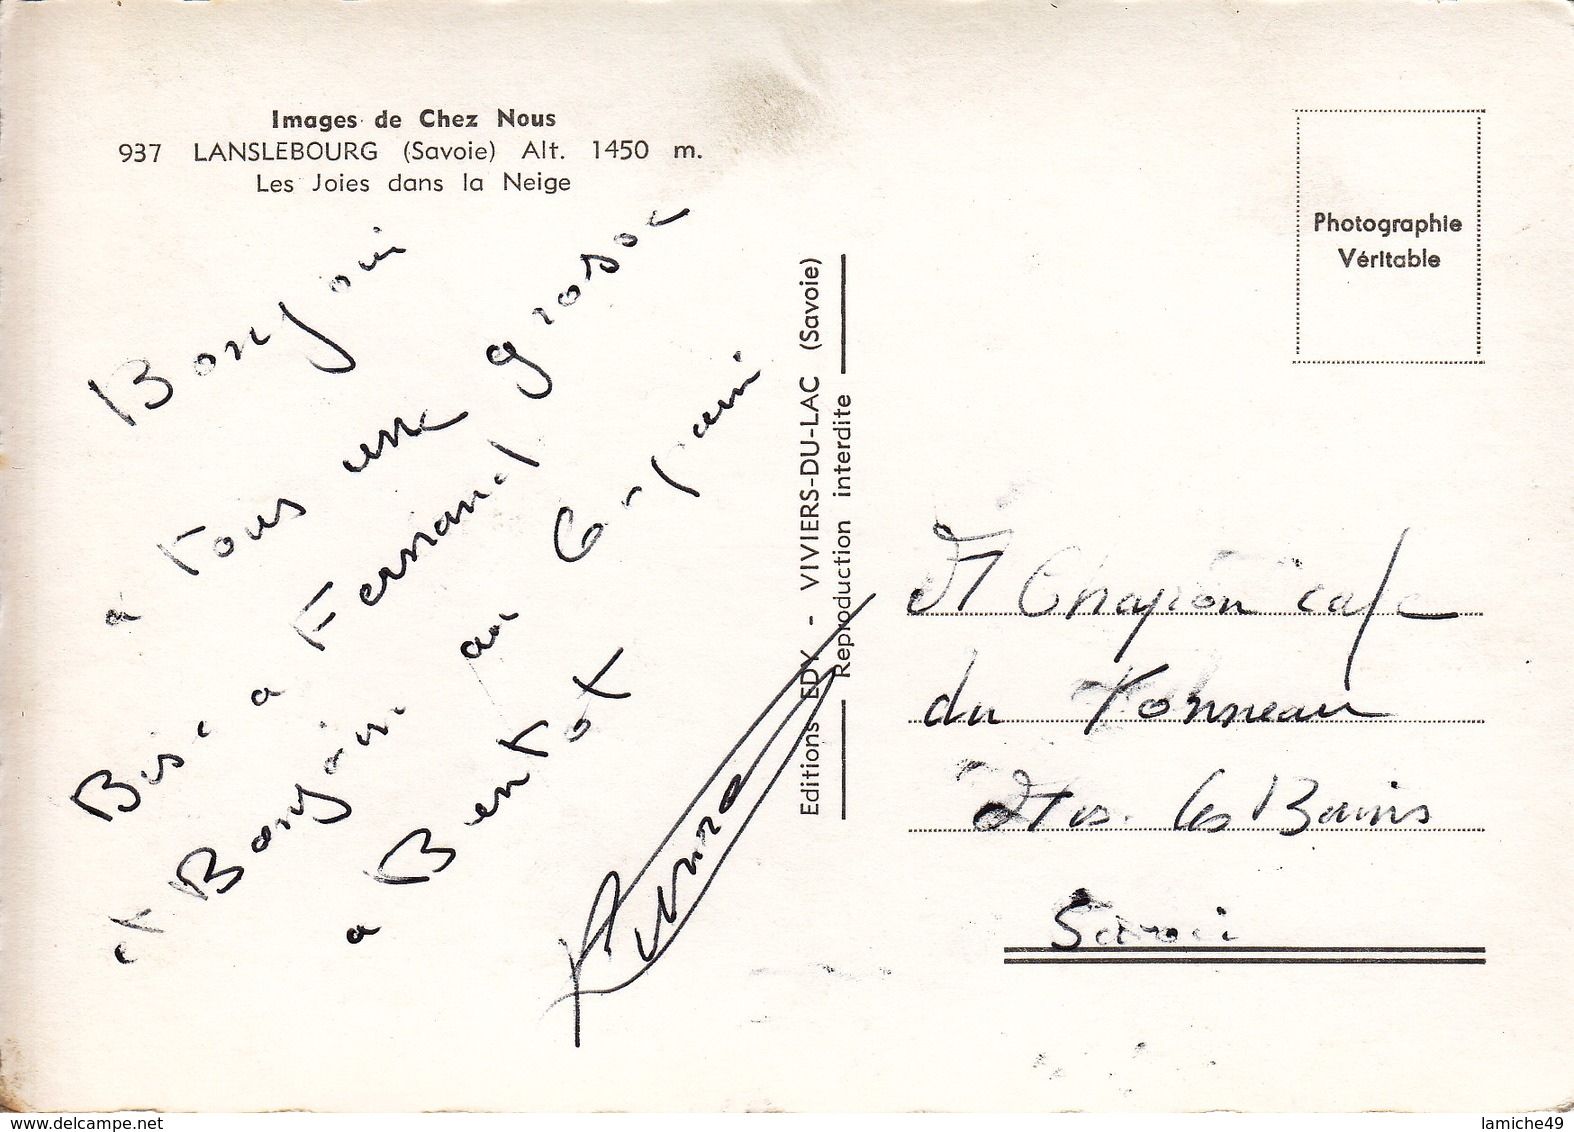 Images de Chez Nous
937 LANSLEBOURG (Savoie) Alt. 1450 m.
Les Joies dans la Neige
Bonjour
a tous une grosse
Bise a Fernand
et Bonjour au Copain
a Bertot
Editions EDY - VIVIERS-DU-LAC (Savoie)
Reproduction interdite
Photographie
Véritable
Mr Chapion cafe
du Tonneau
Les Bains
Savoie
www.delcampe.net
lamiche49